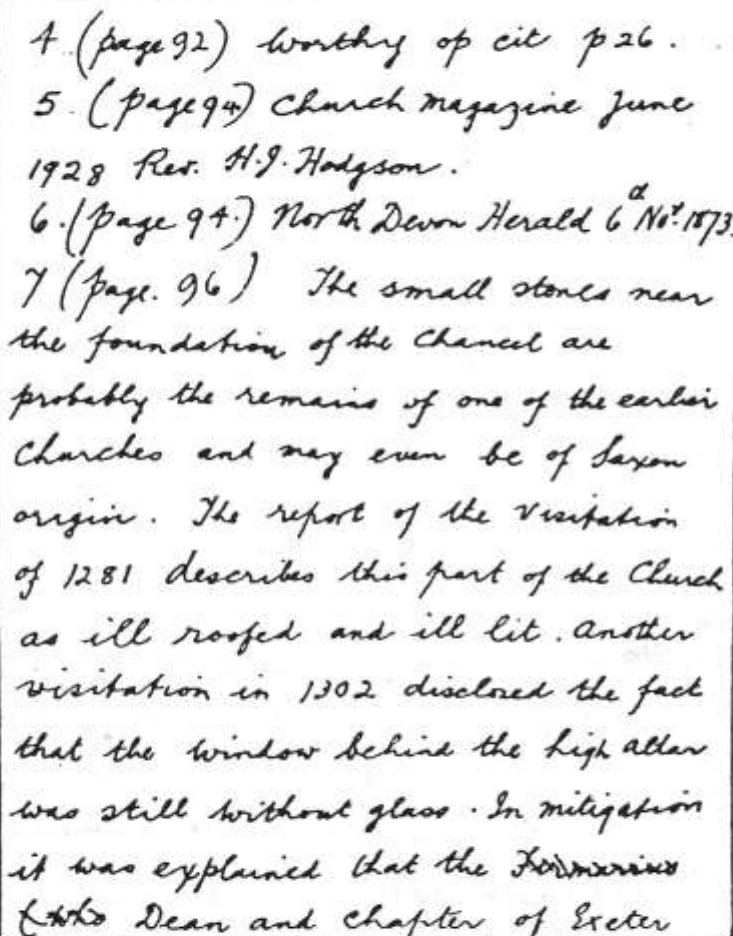 4. (page 92) Worthy op cit p 26.
5. (page 94) Church Magazine June
1928 Rev. H.J. Hodgson.
6. (page 94.) North Devon Herald 6th Nov. 1873.
7 (page. 96) The small stones near
the foundation of the Chancel are
probably the remains of one of the earlier
Churches and may even be of Saxon
origin. The report of the Visitation
of 1281 describes this part of the Church
as ill roofed and ill lit. Another
visitation in 1302 disclosed the fact
that the window behind the high altar
was still without glass. In mitigation
it was explained that the
Dean and Chapter of Exeter